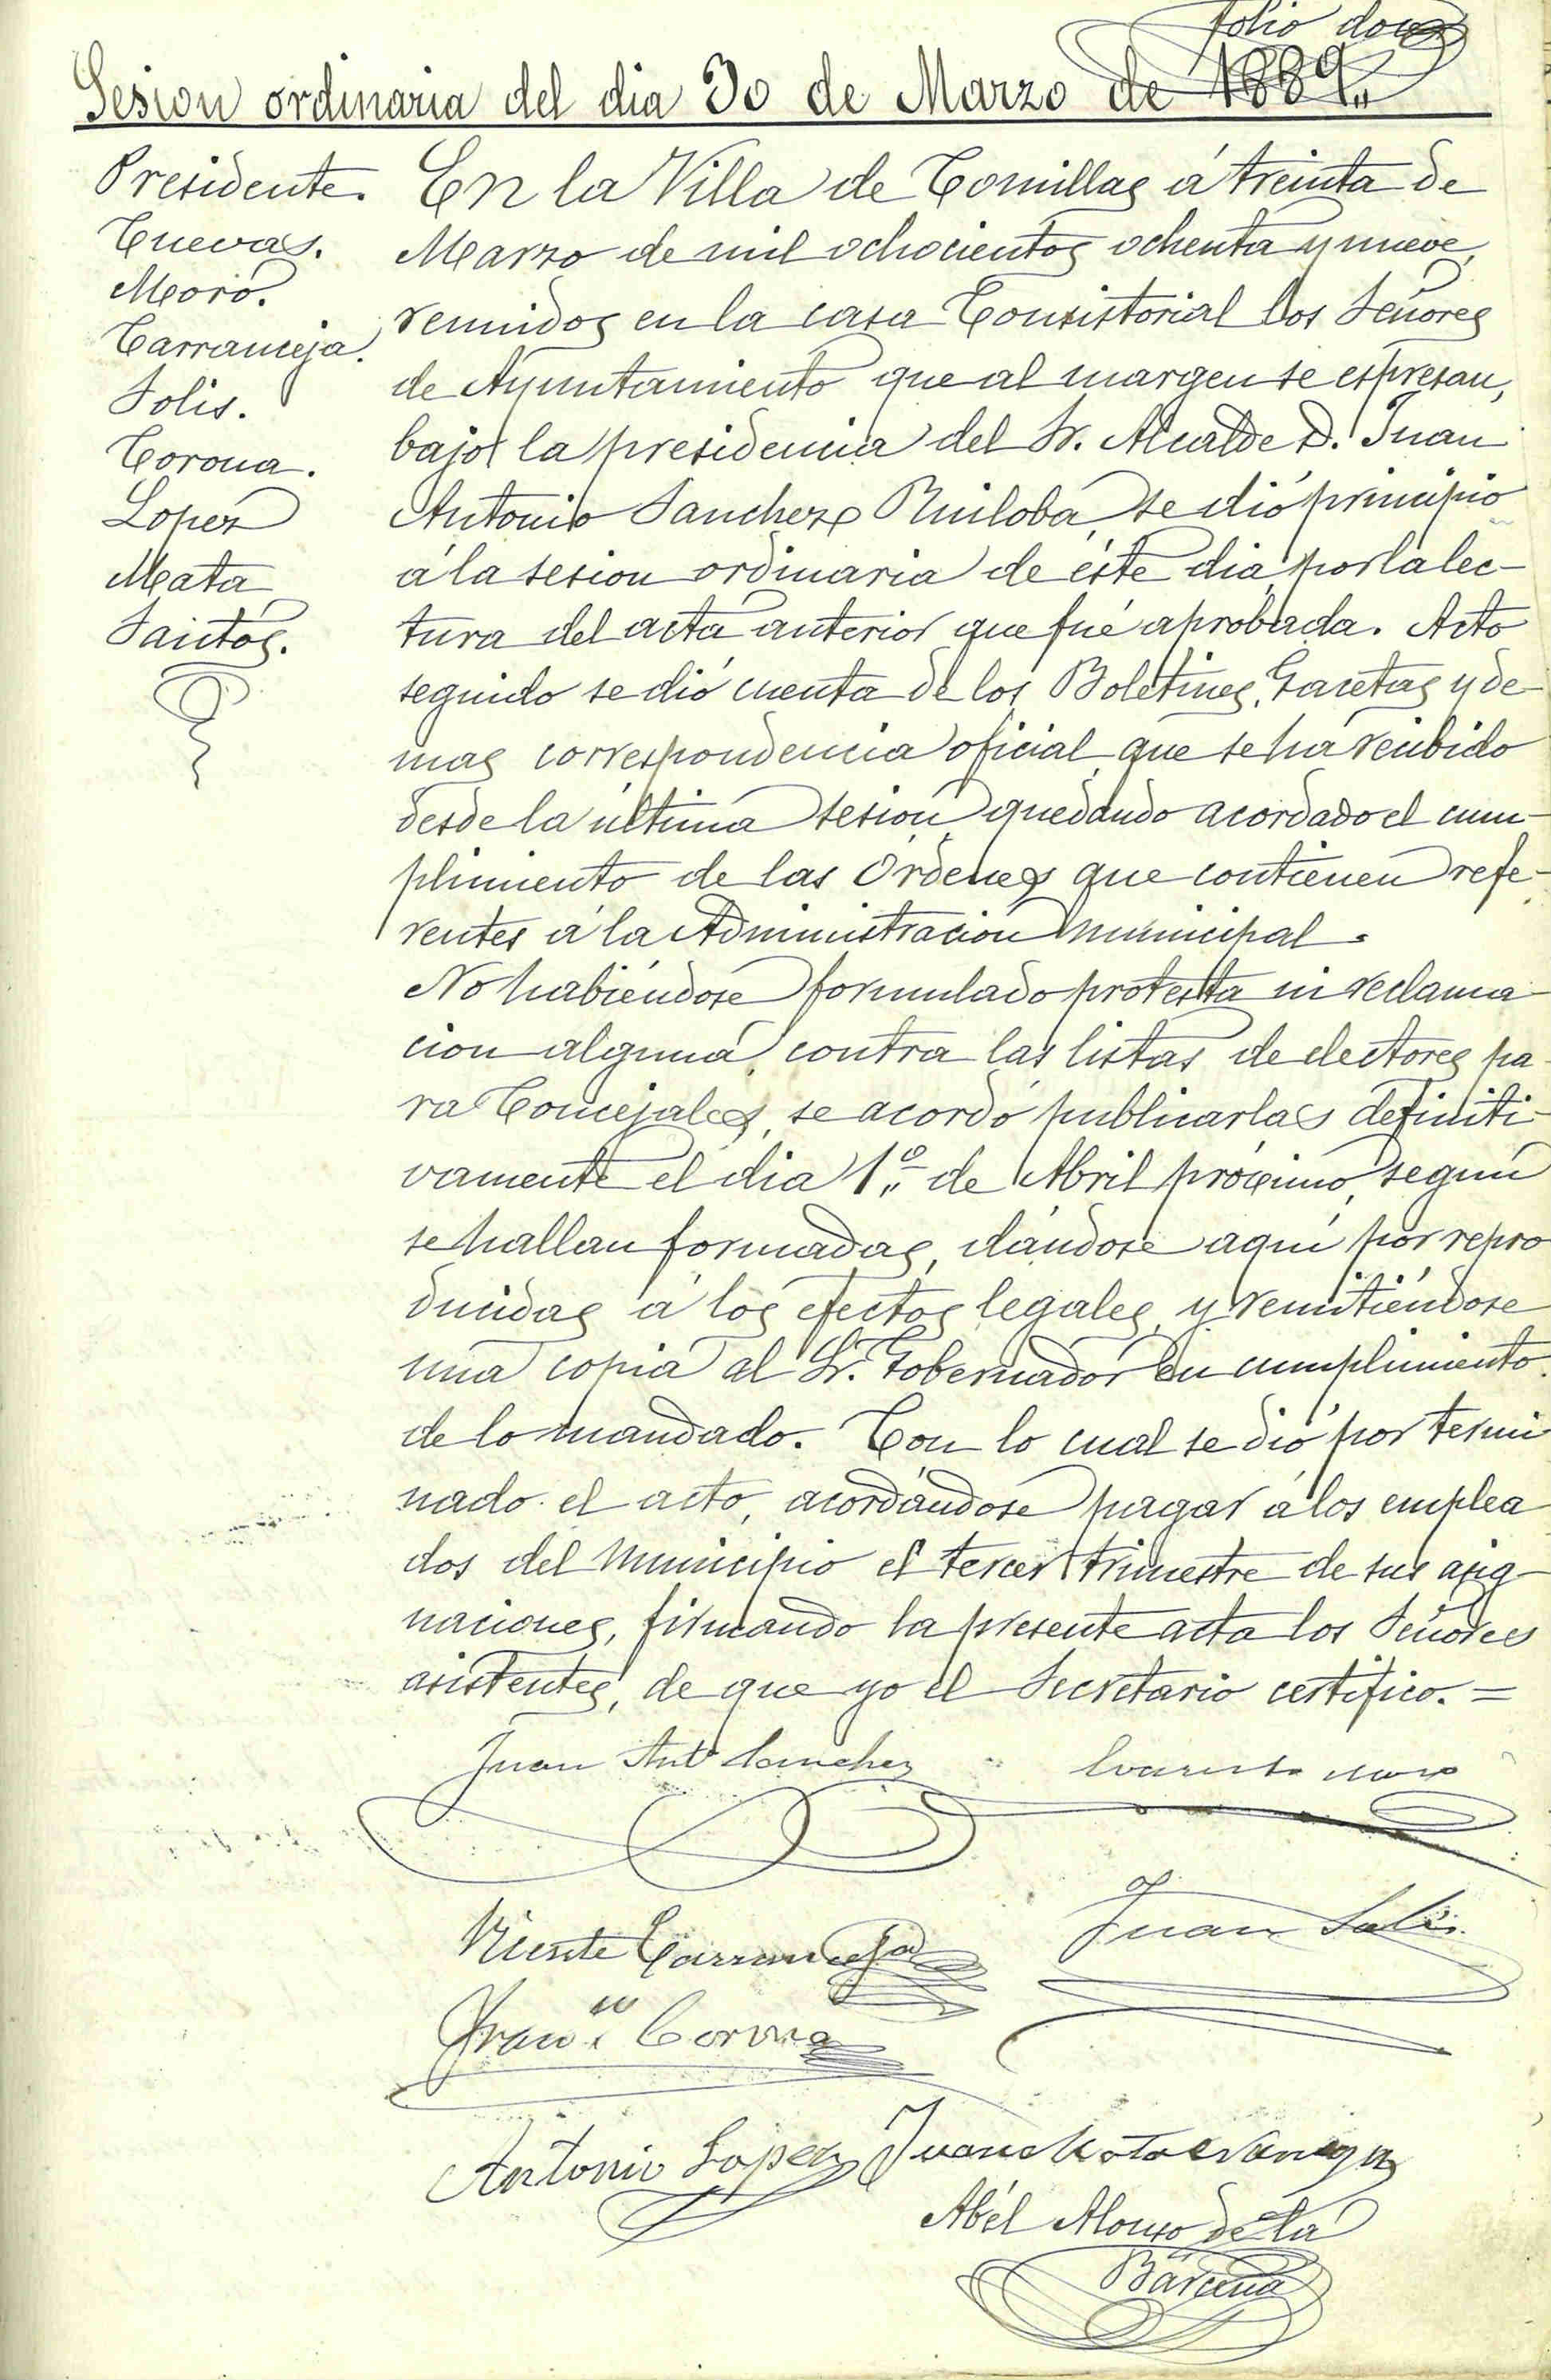 folio doce
Sesion ordinaria del dia 30 de Marzo de 1889„
Presidente.
Cuevas.
Moro.
Carranceja.
Solis.
Corona.
Lopez
Mata
Santos.
En la Villa de Comillas á treinta de
Marzo de mil ochocientos ochenta y nueve,
reunidos en la casa Consistorial los Señores
de Ayuntamiento que al margen se espresan,
bajo la presidencia del Sr. Alcalde D. Juan
Antonio Sanchez Ruiloba, se dió principio
á la sesion ordinaria de éste dia, por la lec-
tura del acta anterior que fué aprobada. Acto
seguido se dió cuenta de los Boletines, Gacetas y de-
mas correspondencia oficial, que se há recibido
desde la última sesion, quedando acordado el cum-
plimiento de las Órdenes que contienen refe-
rentes á la Administracion municipal.
No habiéndose formulado protesta ni reclama-
cion alguna, contra las listas de electores pa-
ra Concejales, se acordó publicarlas definiti-
vamente el dia 1º de Abril próximo, segun
se hallan formadas, dándose aquí por repro
ducidas á los efectos legales, y remitiéndose
una copia al Sr. Gobernador en cumplimiento
de lo mandado. Con lo cual se dió por termi
nado el acto, acordándose pagar á los emplea
dos del Municipio el tercer trimestre de sus asig-
naciones, firmando la presente acta los Señores
asistentes, de que yo el Secretario certifico. =
Juan Antº Sanchez Evaristo Moro
Vicente Carranceja Juan Solis
Franco Corona
Antonio Lopez Juan Mata
Abél Alonso de la
Bárcena